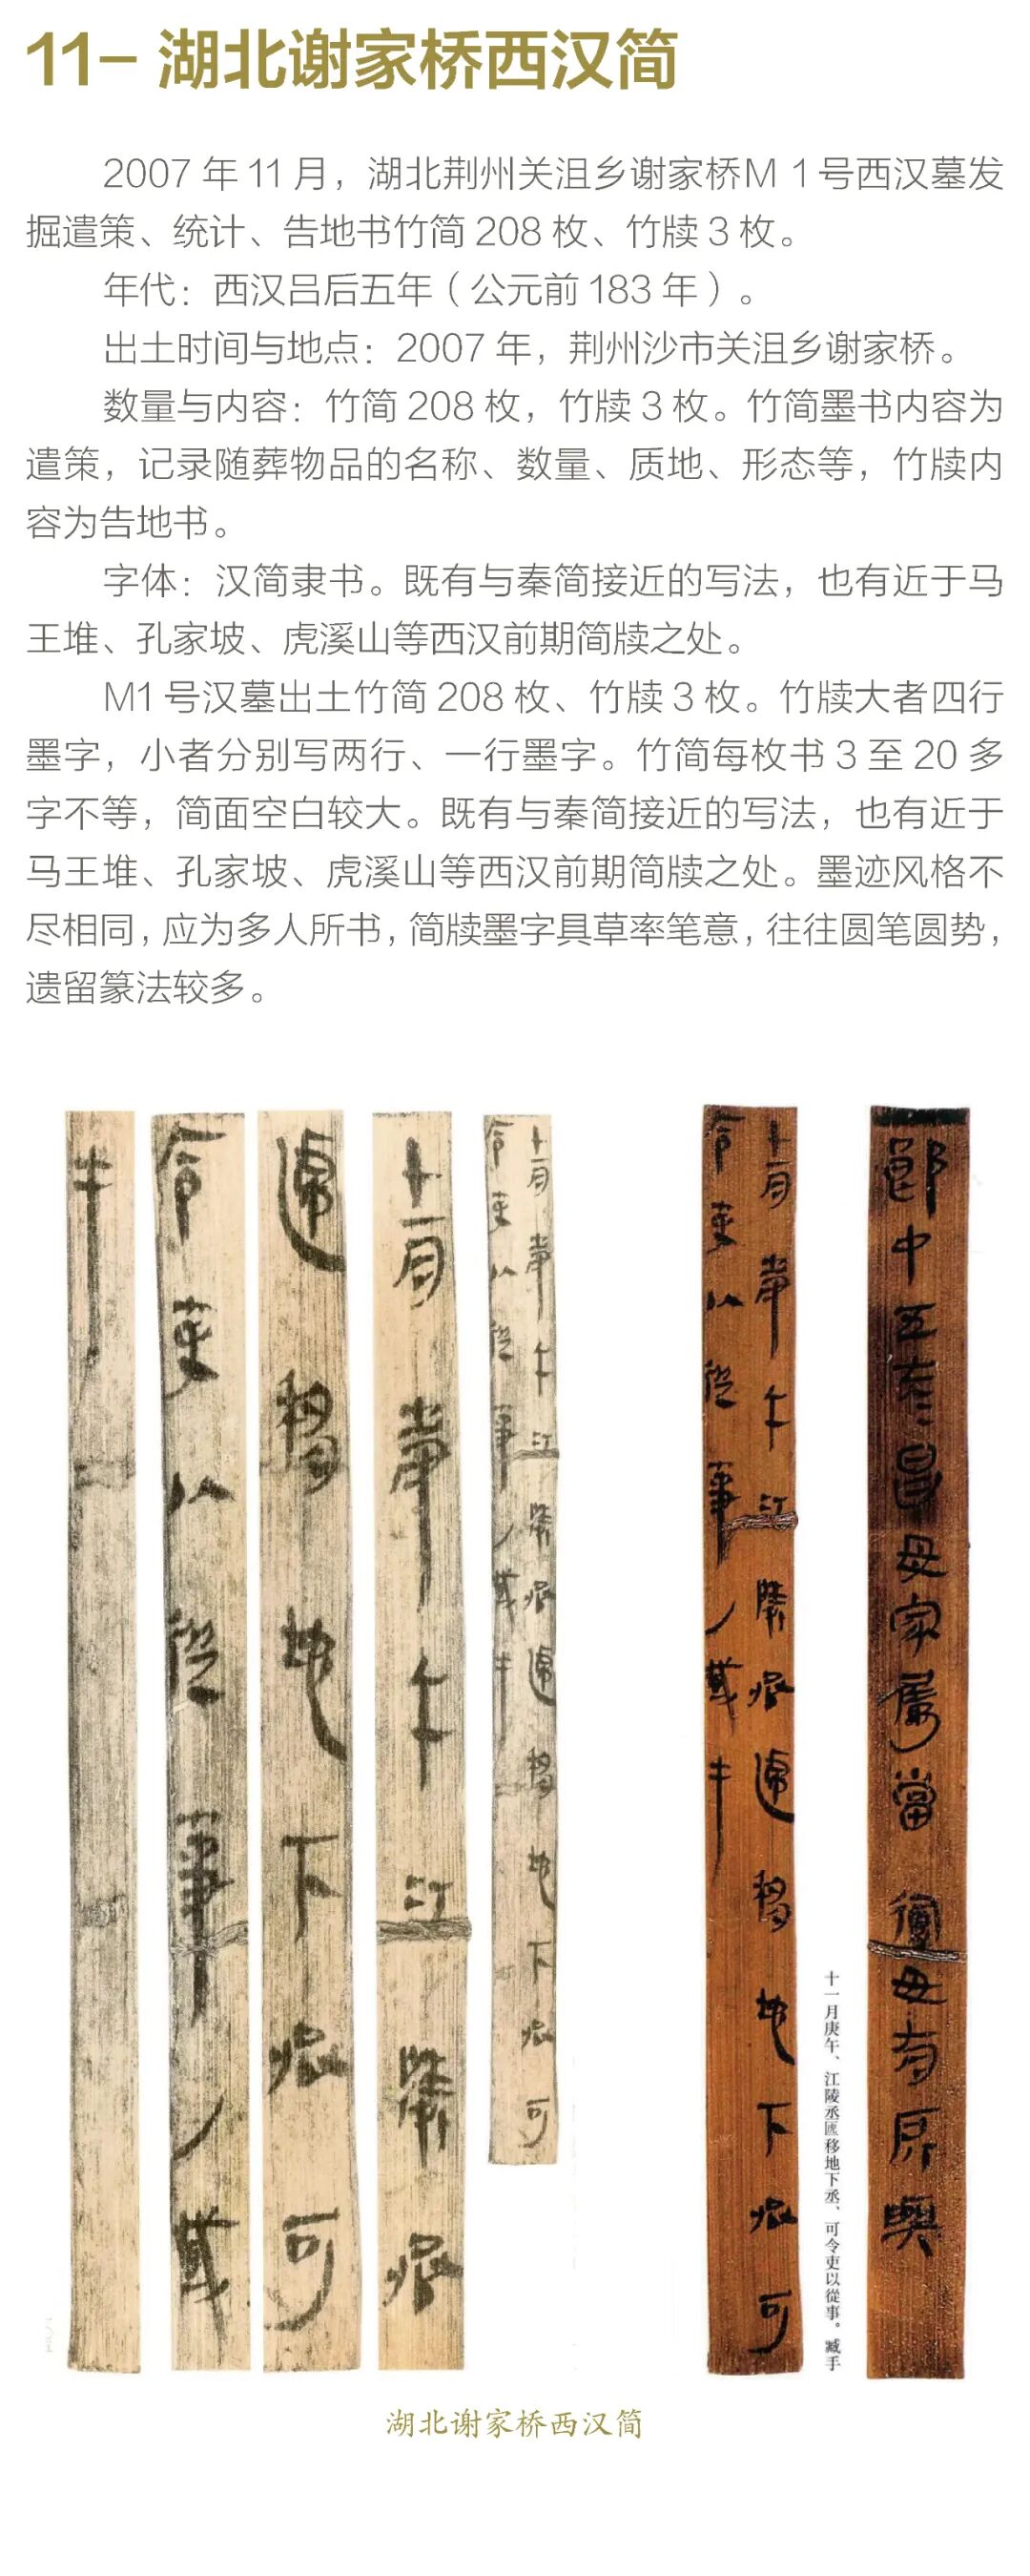 11- 湖北谢家桥西汉简
2007 年 11 月，湖北荆州关沮乡谢家桥M 1号西汉墓发
掘遣策、统计、告地书竹简 208 枚、竹牍 3 枚。
年代：西汉吕后五年（公元前 183 年）。
出土时间与地点：2007 年，荆州沙市关沮乡谢家桥。
数量与内容：竹简 208 枚，竹牍 3 枚。竹简墨书内容为
遣策，记录随葬物品的名称、数量、质地、形态等，竹牍内
容为告地书。
字体：汉简隶书。既有与秦简接近的写法，也有近于马
王堆、孔家坡、虎溪山等西汉前期简牍之处。
M1 号汉墓出土竹简 208 枚、竹牍 3 枚。竹牍大者四行
墨字，小者分别写两行、一行墨字。竹简每枚书 3 至 20 多
字不等，简面空白较大。既有与秦简接近的写法，也有近于
马王堆、孔家坡、虎溪山等西汉前期简牍之处。墨迹风格不
尽相同，应为多人所书，简牍墨字具草率笔意，往往圆笔圆势，
遗留篆法较多。
郎中五夫=昌母家屬當復毋有所與
十一月庚午、江陵丞匽移地下丞、可令吏以從事。臧手
十一月庚午江陵丞
移地下丞可
令吏以從事ノ臧
手
湖北谢家桥西汉简